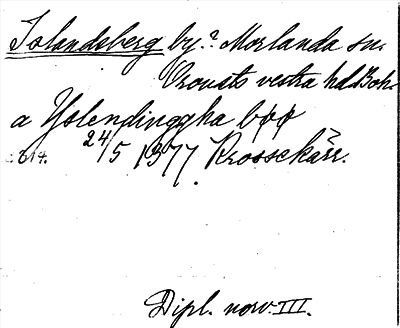 Islandsberg by? Morlanda sn.
Orousts vestra hd. Boh.
a Yslendinggha bøø
: 814. 24/5 1377. Krossekärr.
Dipl. norv. III.